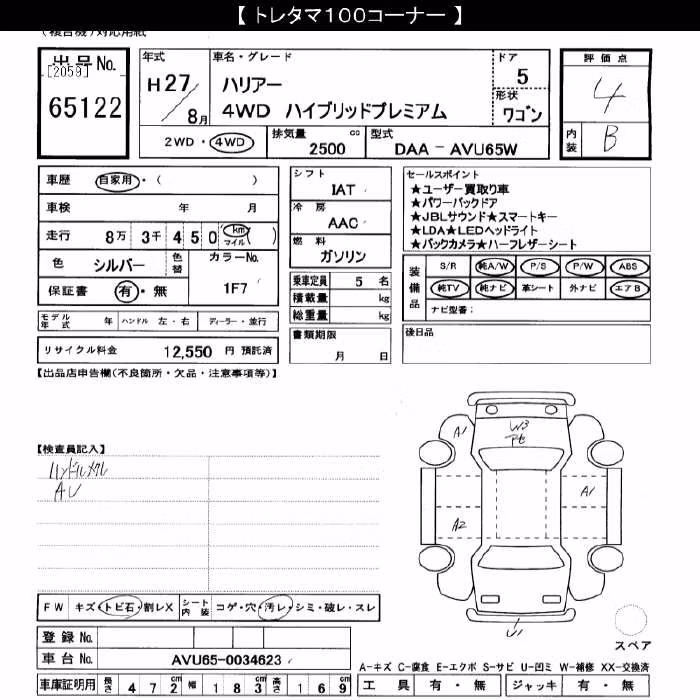 【 トレタマ100コーナー 】
(複合機)対応用紙
出品No.
[2059]
65122
年式
H27/8月
車名・グレード
ハリアー
4WD ハイブリッドプレミアム
ドア
5
形状
ワゴン
2WD・4WD
排気量
2500
cc
型式
DAA - AVU65W
評価点
4
内装
B
車歴
自家用・( )
車検 年 月
走行 8万 3千 4 5 0 km マイル ( )
色 シルバー 色替 カラーNo.
保証書 有・無 1F7
モデル年式 年 ハンドル 左・右 ディーラー・並行
リサイクル料金 12,550 円 預託済
シフト
IAT
冷房
AAC
燃料
ガソリン
乗車定員 5 名
積載量 kg
総重量 kg
書類期限
月 日
セールスポイント
★ユーザー買取り車
★パワーバックドア
★JBLサウンド★スマートキー
★LDA★LEDヘッドライト
★バックカメラ★ハーフレザーシート
装備品
S/R 純A/W P/S P/W ABS
純TV 純ナビ 革シート 外ナビ エアB
ナビ型番:
後日品
【出品店申告欄(不良箇所・欠品・注意事項等)】
【検査員記入】
ハンドルスレ
AU
A1
W3
A1
A2
U1
スペア
FW キズ・トビ石・割レX シート内装 コゲ・穴・汚レ・シミ・破レ・スレ
登録No.
車台No. AVU65-0034623
車庫証明用 長さ 4 7 2 cm 幅 1 8 3 cm 高さ 1 6 9 cm
A-キズ C-腐食 E-エクボ S-サビ U-凹ミ W-補修 XX-交換済
工具 有・無 ジャッキ 有・無